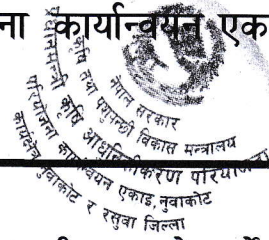 ना कार्यान्वयन एक
नेपाल सरकार
कृषि तथा पशुपन्छी विकास मन्त्रालय
प्रधानमन्त्री कृषि आधुनिकीकरण परियोजना
परियोजना कार्यान्वयन एकाइ, नुवाकोट
कार्यक्षेत्र नुवाकोट र रसुवा जिल्ला